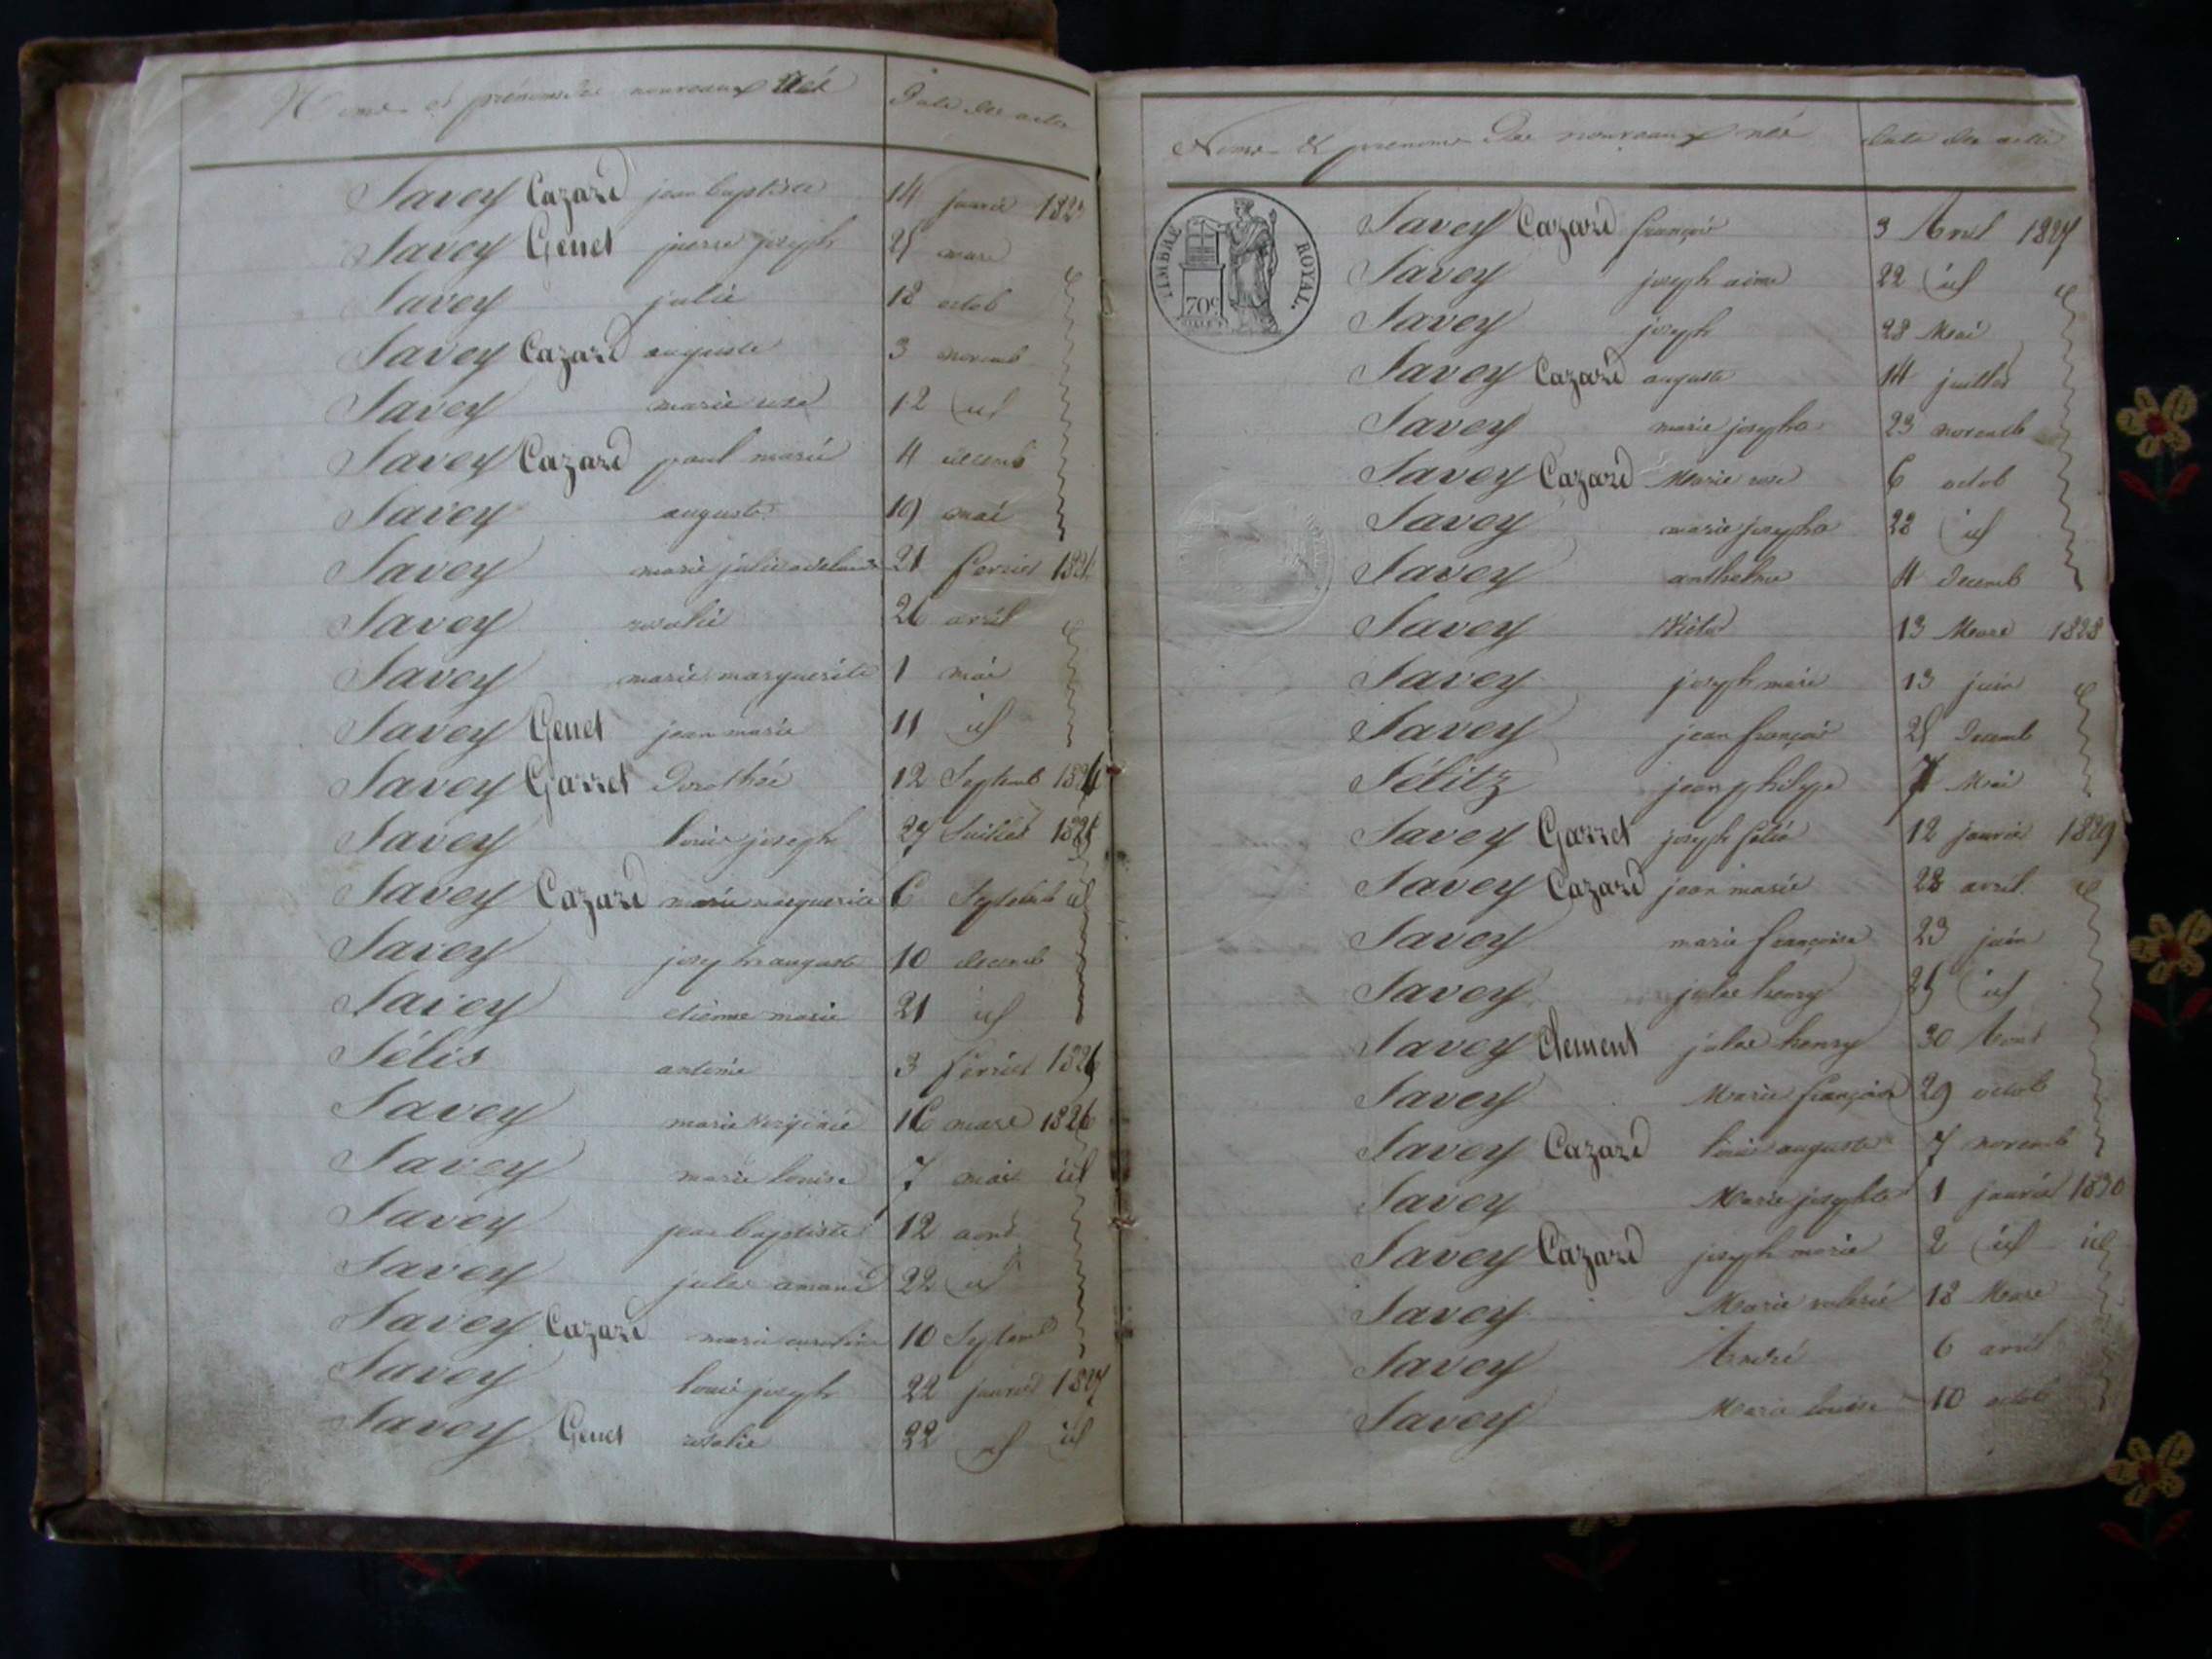 Noms et prénoms des nouveaux Nés Date des actes
Savey Cazard jean baptiste 14 janvié 1823
Savey Genet pierre joseph 25 mars
Savey julie 18 octob
Savey Cazard auguste 3 novemb
Savey marie rose 12 id
Savey Cazard paul marié 4 decemb
Savey auguste 19 mai
Savey marie julie 21 fevrier 1824
Savey rosalie 26 avril
Savey marie marguerite 1 mai
Savey Genet jean marie 11 id
Savey Garret Dorothée 12 Septemb 1824
Savey louis joseph 27 Juillet 1825
Savey Cazard marie marguerite 6 Septemb id
Savey joseph auguste 10 decemb
Savey etienne marie 21 id
Sélis antoine 3 fevrier 1826
Savey marie virginie 16 mars 1826
Savey marie louise 7 mai id
Savey jean baptiste 12 aout
Savey jules amand 22 id
Savey Cazard marie 10 Septemb
Savey louis joseph 22 janvier 1827
Savey Genet rosalie 22 id id
Noms & prenoms des nouveaux nés date des actes
TIMBRE ROYAL. 70c
Savey Cazard françois 3 Avril 1827
Savey joseph aimé 22 id
Savey joseph 28 Mai
Savey Cazard auguste 14 juillet
Savey marie josephe 23 novemb
Savey Cazard Marie rose 6 octob
Savey marie josephe 28 id
Savey anthelme 4 Decemb
Savey Victor 13 Mars 1828
Savey joseph marie 13 juin
Savey jean françois 25 Decemb
Sélitz jean philipe 7 Mai
Savey Garret joseph félix 12 janvier 1829
Savey Cazard jean marie 28 avril
Savey marie françoise 23 juin
Savey jules henry 25 id
Savey Clement jules henry 30 Aout
Savey Marie françoise 29 octob
Savey Cazard louis auguste 7 novemb
Savey Marie josephte 1 janvier 1830
Savey Cazard joseph marie 2 id id
Savey Marie valerie 18 Mars
Savey André 6 avril
Savey Marie louise 10 octob